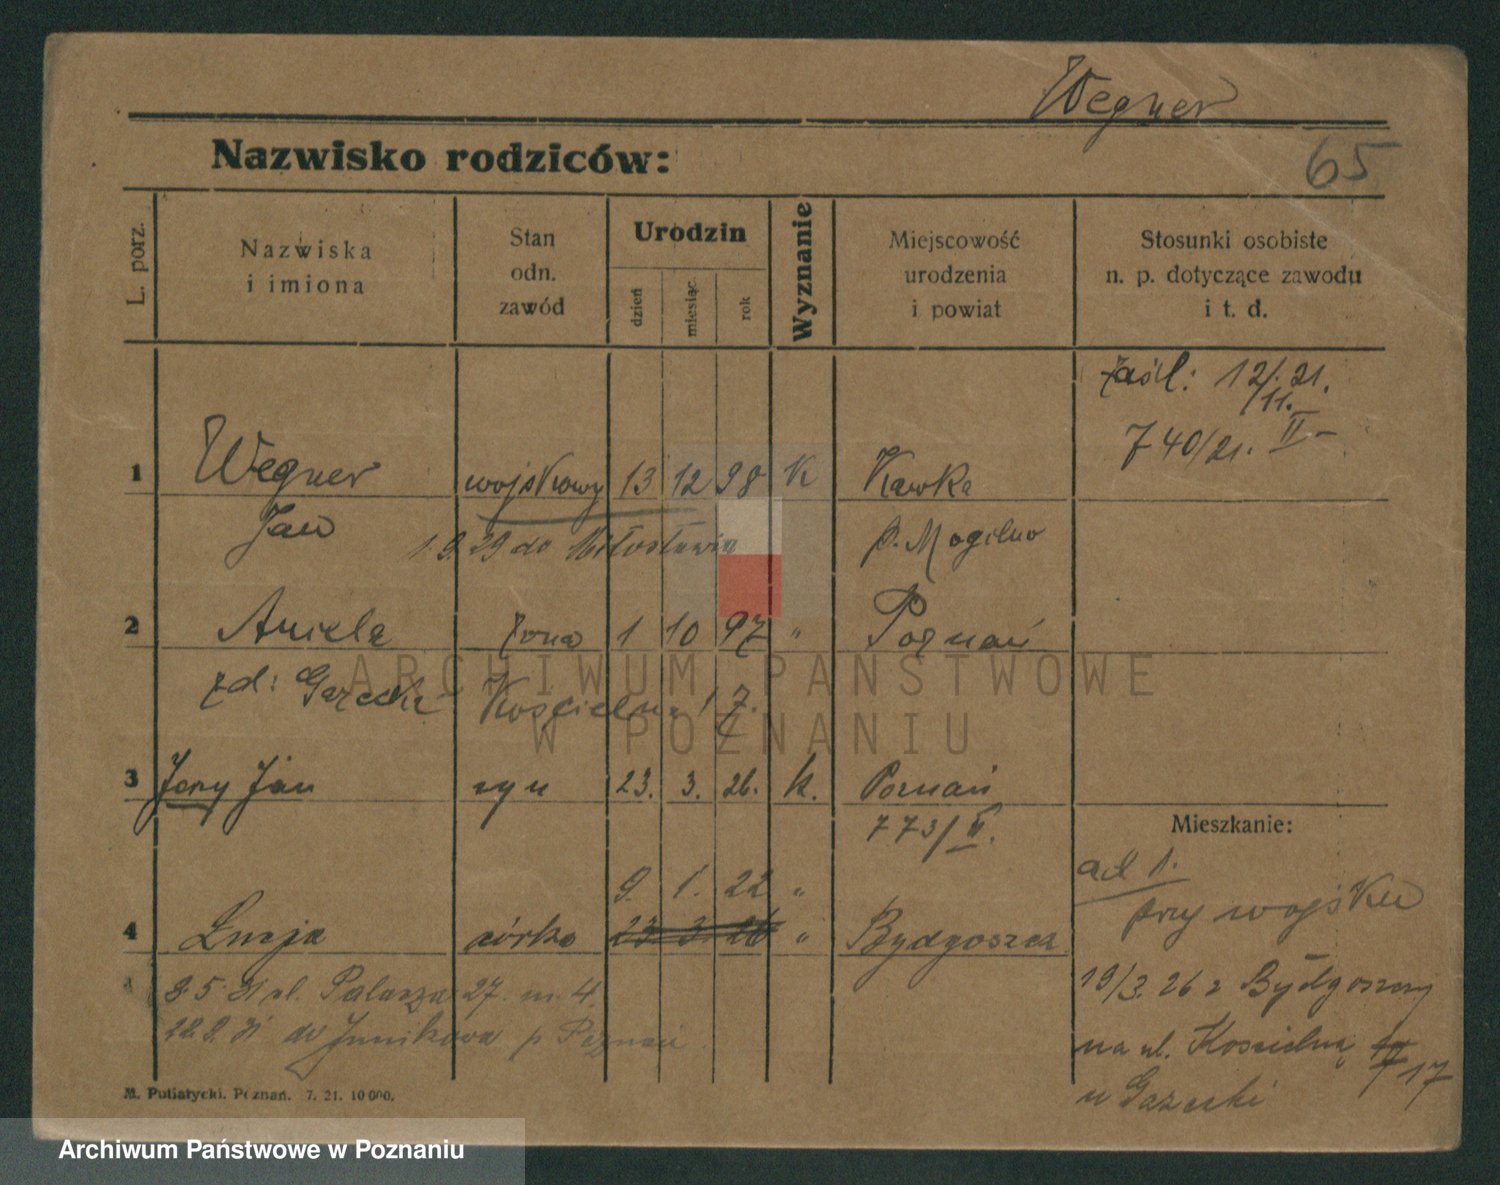 Wegner
65
Nazwisko rodziców:
L. porz.
Nazwiska
i imiona
Stan
odn.
zawód
Urodzin
dzień
miesiąc
rok
Wyznanie
Miejscowość
urodzenia
i powiat
Stosunki osobiste
n. p. dotyczące zawodu
i t. d.
zaśl: 12/11. 21.
740/21. II –
1 Wegner wojskowy 13 12 98 K Kawka
Jan p. Mogilno
1.9.29 do Miłosławia
2 Aniela żona 1 10 97 " Poznań
zd: Kościelna 17.
3 Jerzy Jan syn 23. 3. 26. k. Poznań
773/II.
Mieszkanie:
ad 1.
przy wojsku
9. 1. 22 "
4 Łucja córka 23 3 26 " Bydgoszcz
8.5.31 ul. Palacza 27. m. 4
19/3. 26 z Bydgoszczy
22.9.31 do Junikowa p Poznań
na ul. Kościelną 17
u
M. Putiatycki. Poznań. 7. 21. 10 000.
ARCHIWUM PAŃSTWOWE
W POZNANIU
Archiwum Państwowe w Poznaniu